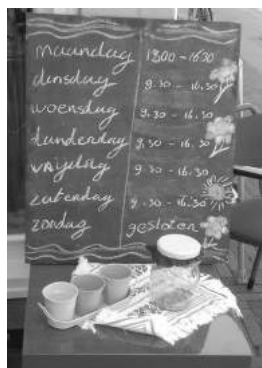 maandag 1300 - 1630
dinsdag 9.30 - 16.30
woensdag 9.30 - 16.30
dunderdag 9.30 - 16.30
vrijdag 9.30 - 16.30
zaterdag 9.30 - 16.30
zondag gesloten